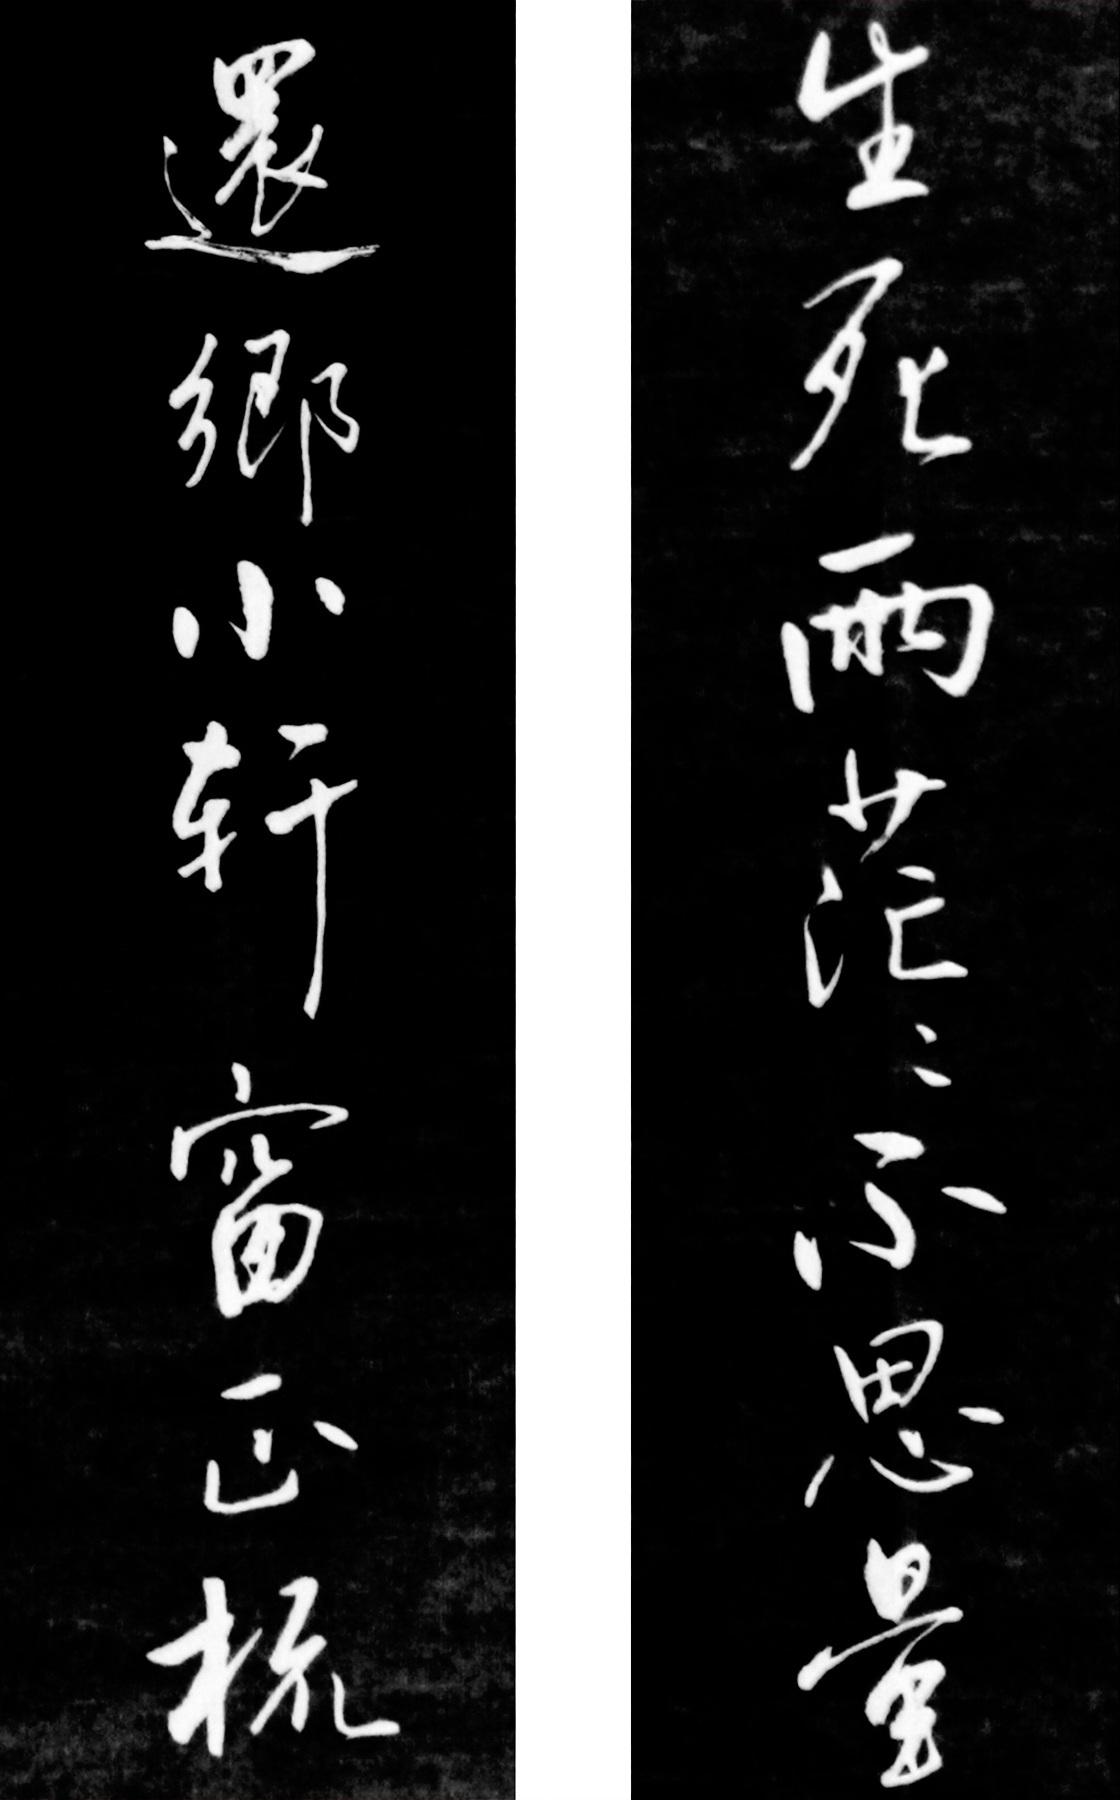 生死兩茫〻不思量
還鄉小軒窗正梳